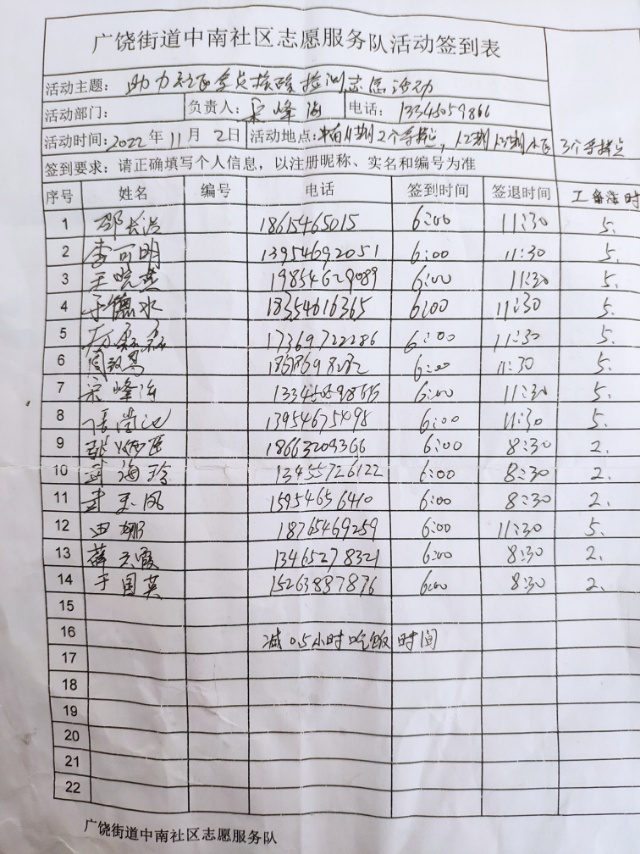 广饶街道中南社区志愿服务队活动签到表
活动主题: 助力社区全员核酸检测志愿活动
活动部门: 负责人: 宋峰海 电话:
活动时间: 2022年11月2日 活动地点: 3个采样点
签到要求: 请正确填写个人信息，以注册昵称、实名和编号为准
序号 姓名 编号 电话 签到时间 签退时间 工备注时
1 邵长浩 18615465015 6:00 11:30 5.
2 李可明 13954692051 6:00 11:30 5.
3 王晓燕 19854629089 6:00 11:30 5.
4 于德水 18354616365 6:00 11:30 5.
5 17369722286 6:00 11:30 5.
6 6:00 11:30 5.
7 宋峰海 6:00 11:30 5.
8 6:00 11:30 5.
9 18663209366 6:00 8:30 2.
10 海玲 13455726122 6:00 8:30 2.
11 李玉凤 15954656410 6:00 8:30 2.
12 田娜 18765469259 6:00 11:30 5.
13 薛云霞 13465278321 6:00 8:30 2.
14 于国英 15263897876 6:00 8:30 2.
15
16 减0.5小时吃饭时间
17
18
19
20
21
22
广饶街道中南社区志愿服务队